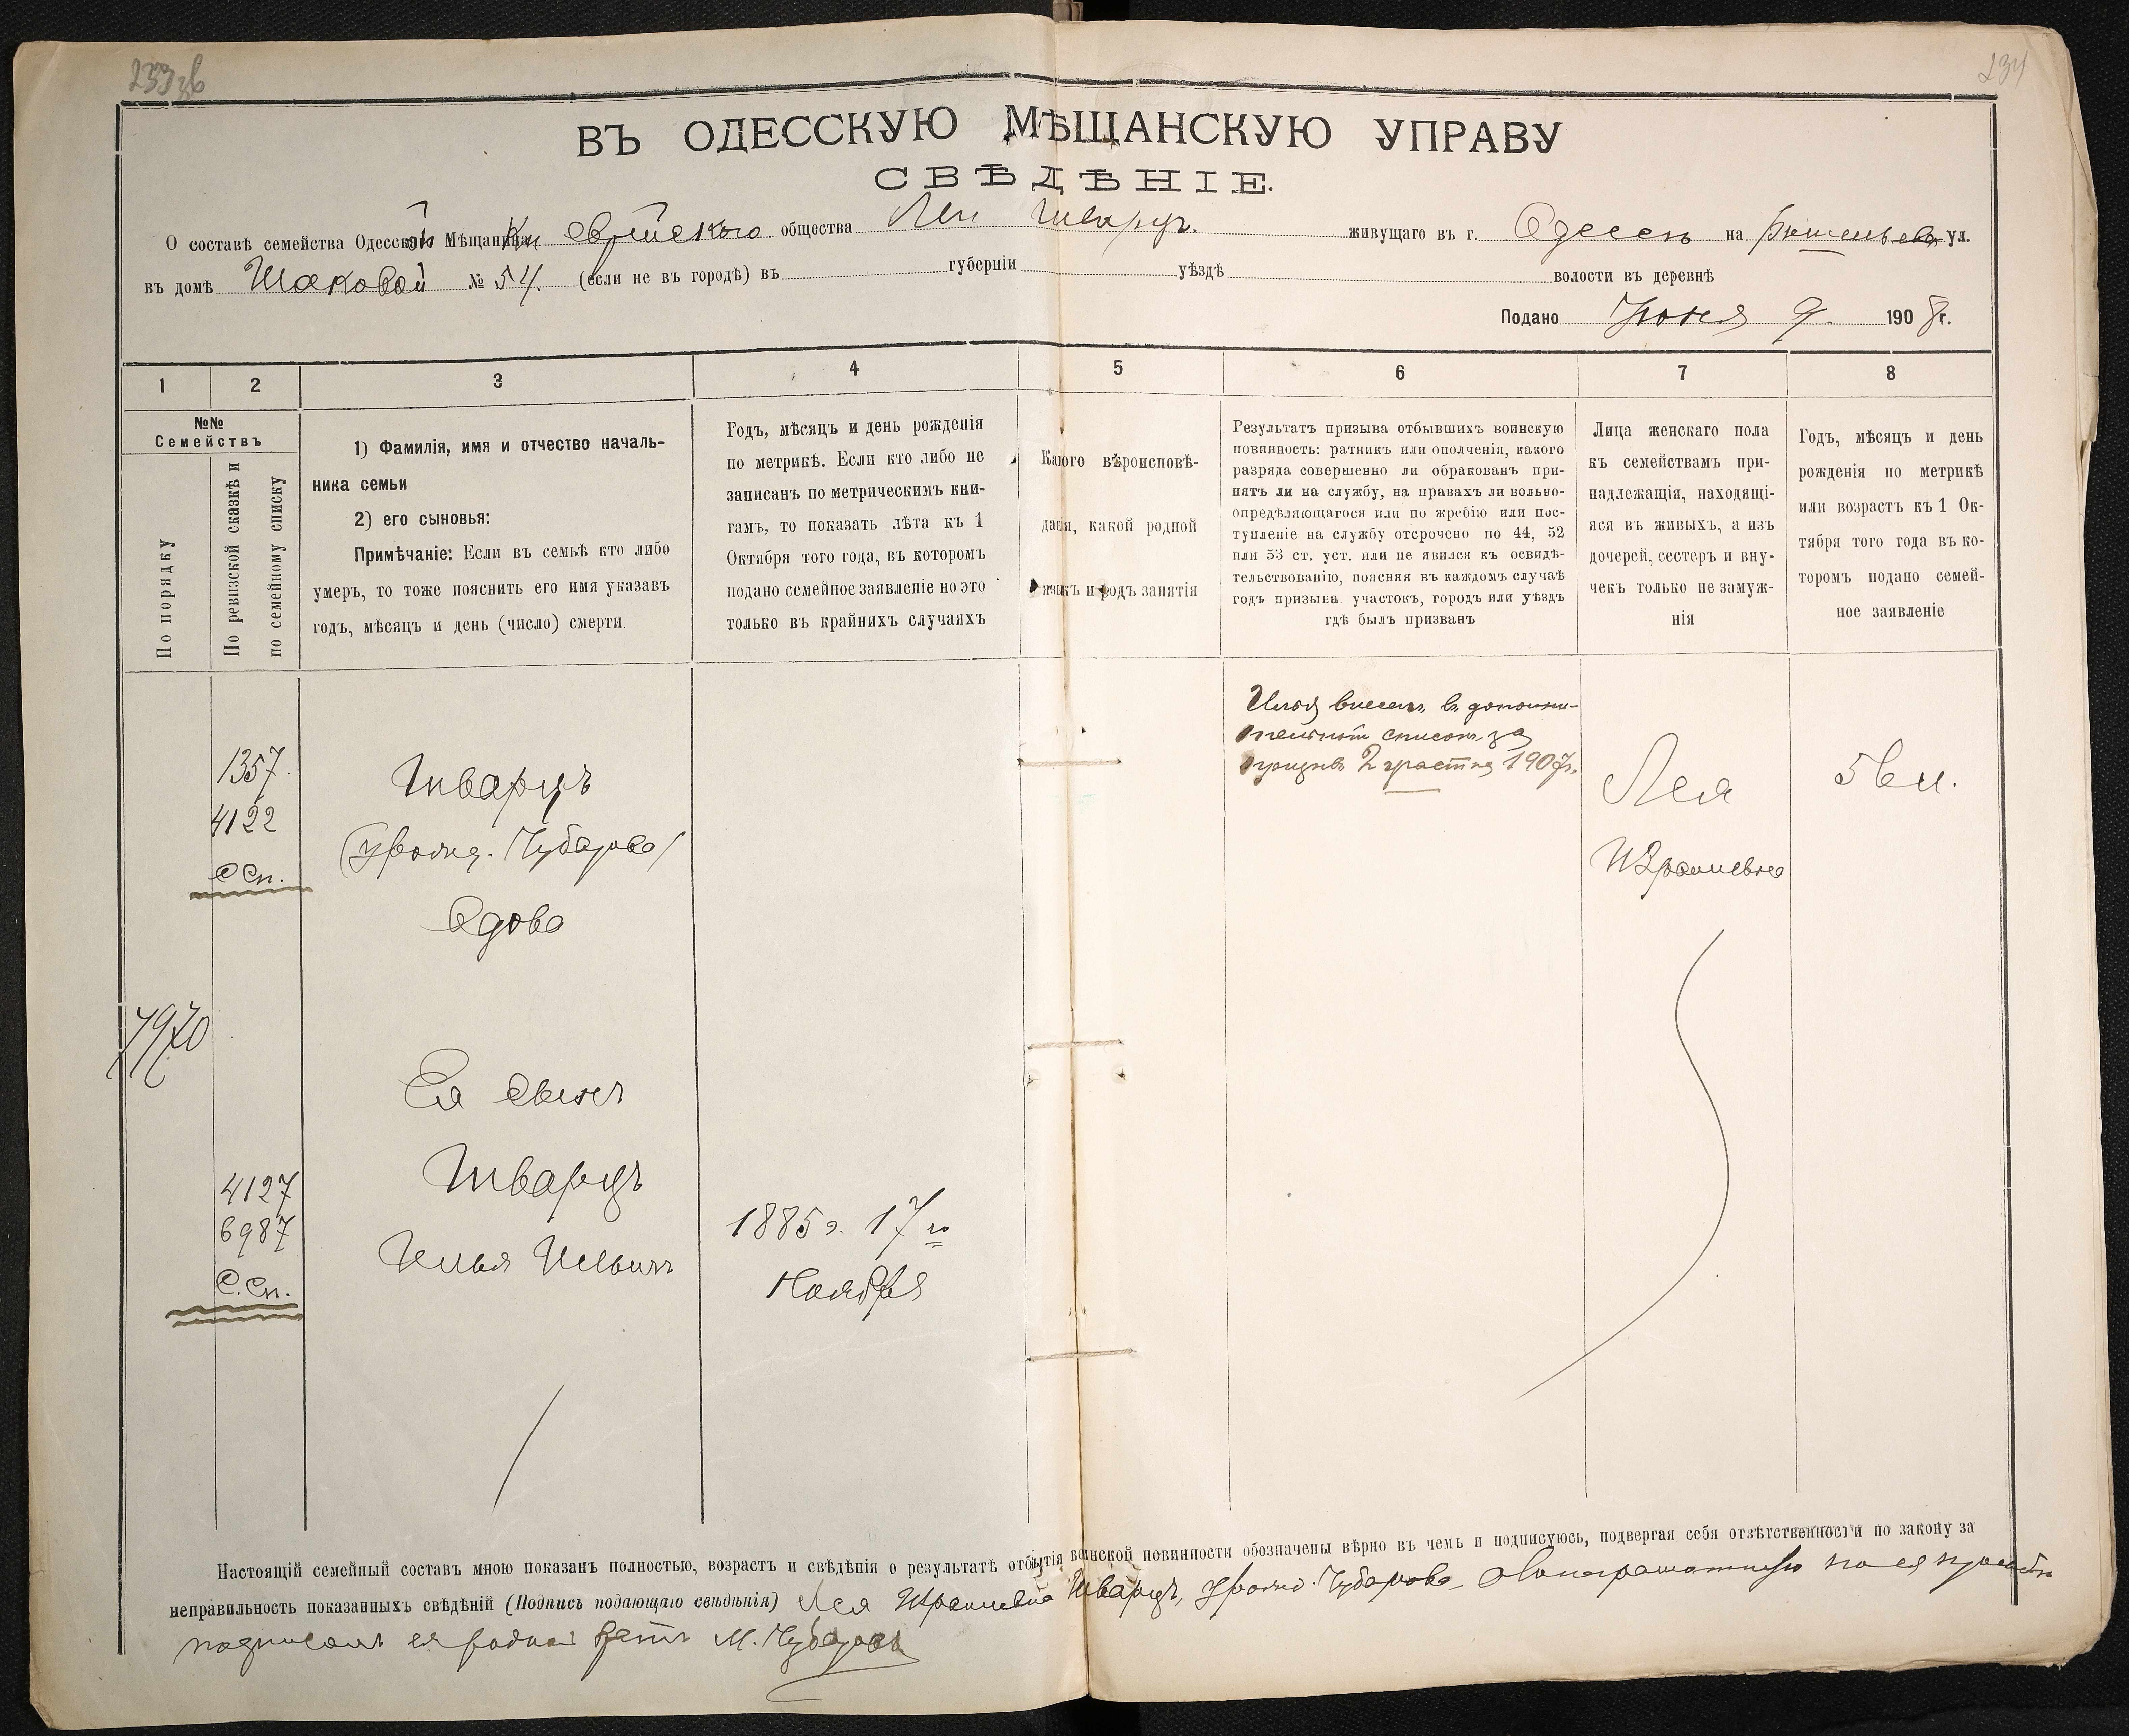 233 об
234
ВЪ ОДЕССКУЮ МѢЩАНСКУЮ УПРАВУ
СВѢДѢНІЕ.
О составѣ семейства Одесской Мѣщанки еврейскаго общества Леи Шварцъ. живущаго въ г. Одессѣ на Ришельев. ул.
въ домѣ Шаковой № 54. (если не въ городѣ) въ губерніи уѣздѣ волости въ деревнѣ
Подано Іюня 9 1908 г.
1 2 3 4 5 6 7 8
№№ Семействъ
По порядку
По ревизской сказкѣ и
по семейному списку
1) Фамилія, имя и отчество началь-
ника семьи
2) его сыновья:
Примѣчаніе: Если въ семьѣ кто либо
умеръ, то тоже пояснить его имя указавъ
годъ, мѣсяцъ и день (число) смерти.
Годъ, мѣсяцъ и день рожденія
по метрикѣ. Если кто либо не
записанъ по метрическимъ кни-
гамъ, то показать лѣта къ 1
Октября того года, въ которомъ
подано семейное заявленіе но это
только въ крайнихъ случаяхъ
Какого вѣроисповѣ-
данія, какой родной
языкъ и родъ занятія
Результатъ призыва отбывшихъ воинскую
повинность: ратникъ или ополченія, какого
разряда совершенно ли обракованъ при-
нятъ ли на службу, на правахъ ли вольно-
опредѣляющагося или по жребію или пос-
тупленіе на службу отсрочено по 44, 52
или 53 ст. уст. или не явился къ освидѣ-
тельствованію, поясняя въ каждомъ случаѣ
годъ призыва участокъ, городъ или уѣздъ
гдѣ былъ призванъ
Лица женскаго пола
къ семействамъ при-
надлежащія, находящі-
яся въ живыхъ, а изъ
дочерей, сестеръ и вну-
чекъ только не замуж-
нія
Годъ, мѣсяцъ и день
рожденія по метрикѣ
или возрастъ къ 1 Ок-
тября того года въ ко-
торомъ подано семей-
ное заявленіе
1357.
4122
С Сп.
Шварцъ
(урожд. Чубарова)
Вдова
Илья внесенъ въ дополни-
тельный списокъ за
призывъ 2 участка 1907 г.
Лея
Израилевна
56 л.
7970
Ея сынъ
Шварцъ
Илья Ильичъ
4127
6987
С. Сп.
1885 г. 17 го
Ноября
Настоящій семейный составъ мною показанъ полностью, возрастъ и свѣдѣнія о результатѣ отбытія воинской повинности обозначены вѣрно въ чемъ и подписуюсь, подвергая себя отвѣтственности по закону за
неправильность показанныхъ свѣдѣній (Подпись подающаго свѣдѣнія) Лея Израилевна Шварцъ, урожд. Чубарова, по ея просьбѣ
подписалъ ея родной братъ М. Чубаровъ